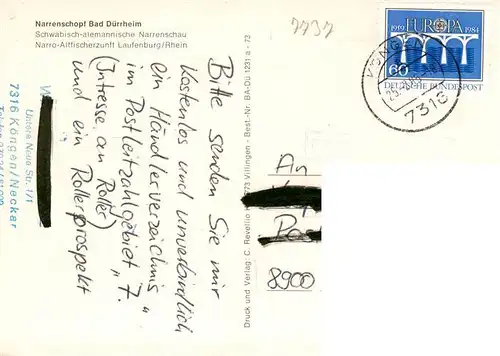 Narrenschopf Bad Dürrheim
Schwäbisch-alemannische Narrenschau
Narro-Altfischerzunft Laufenburg/Rhein
7737
1959 EUROPA 1984
60
DEUTSCHE BUNDESPOST
KÖNGEN
7316
Bitte senden Sie mir
kostenlos und unverbindlich
ein Händlerverzeichnis
im Postleitzahlgebiet "7.
(Intresse an Roller)
und ein Rollerprospekt
Untere Neue Str. 1/1
7316 Köngen/Neckar
Druck und Verlag: C. Revellio 773 Villingen - Best.-Nr. BA-Dü 1231 a - 73
An
8900